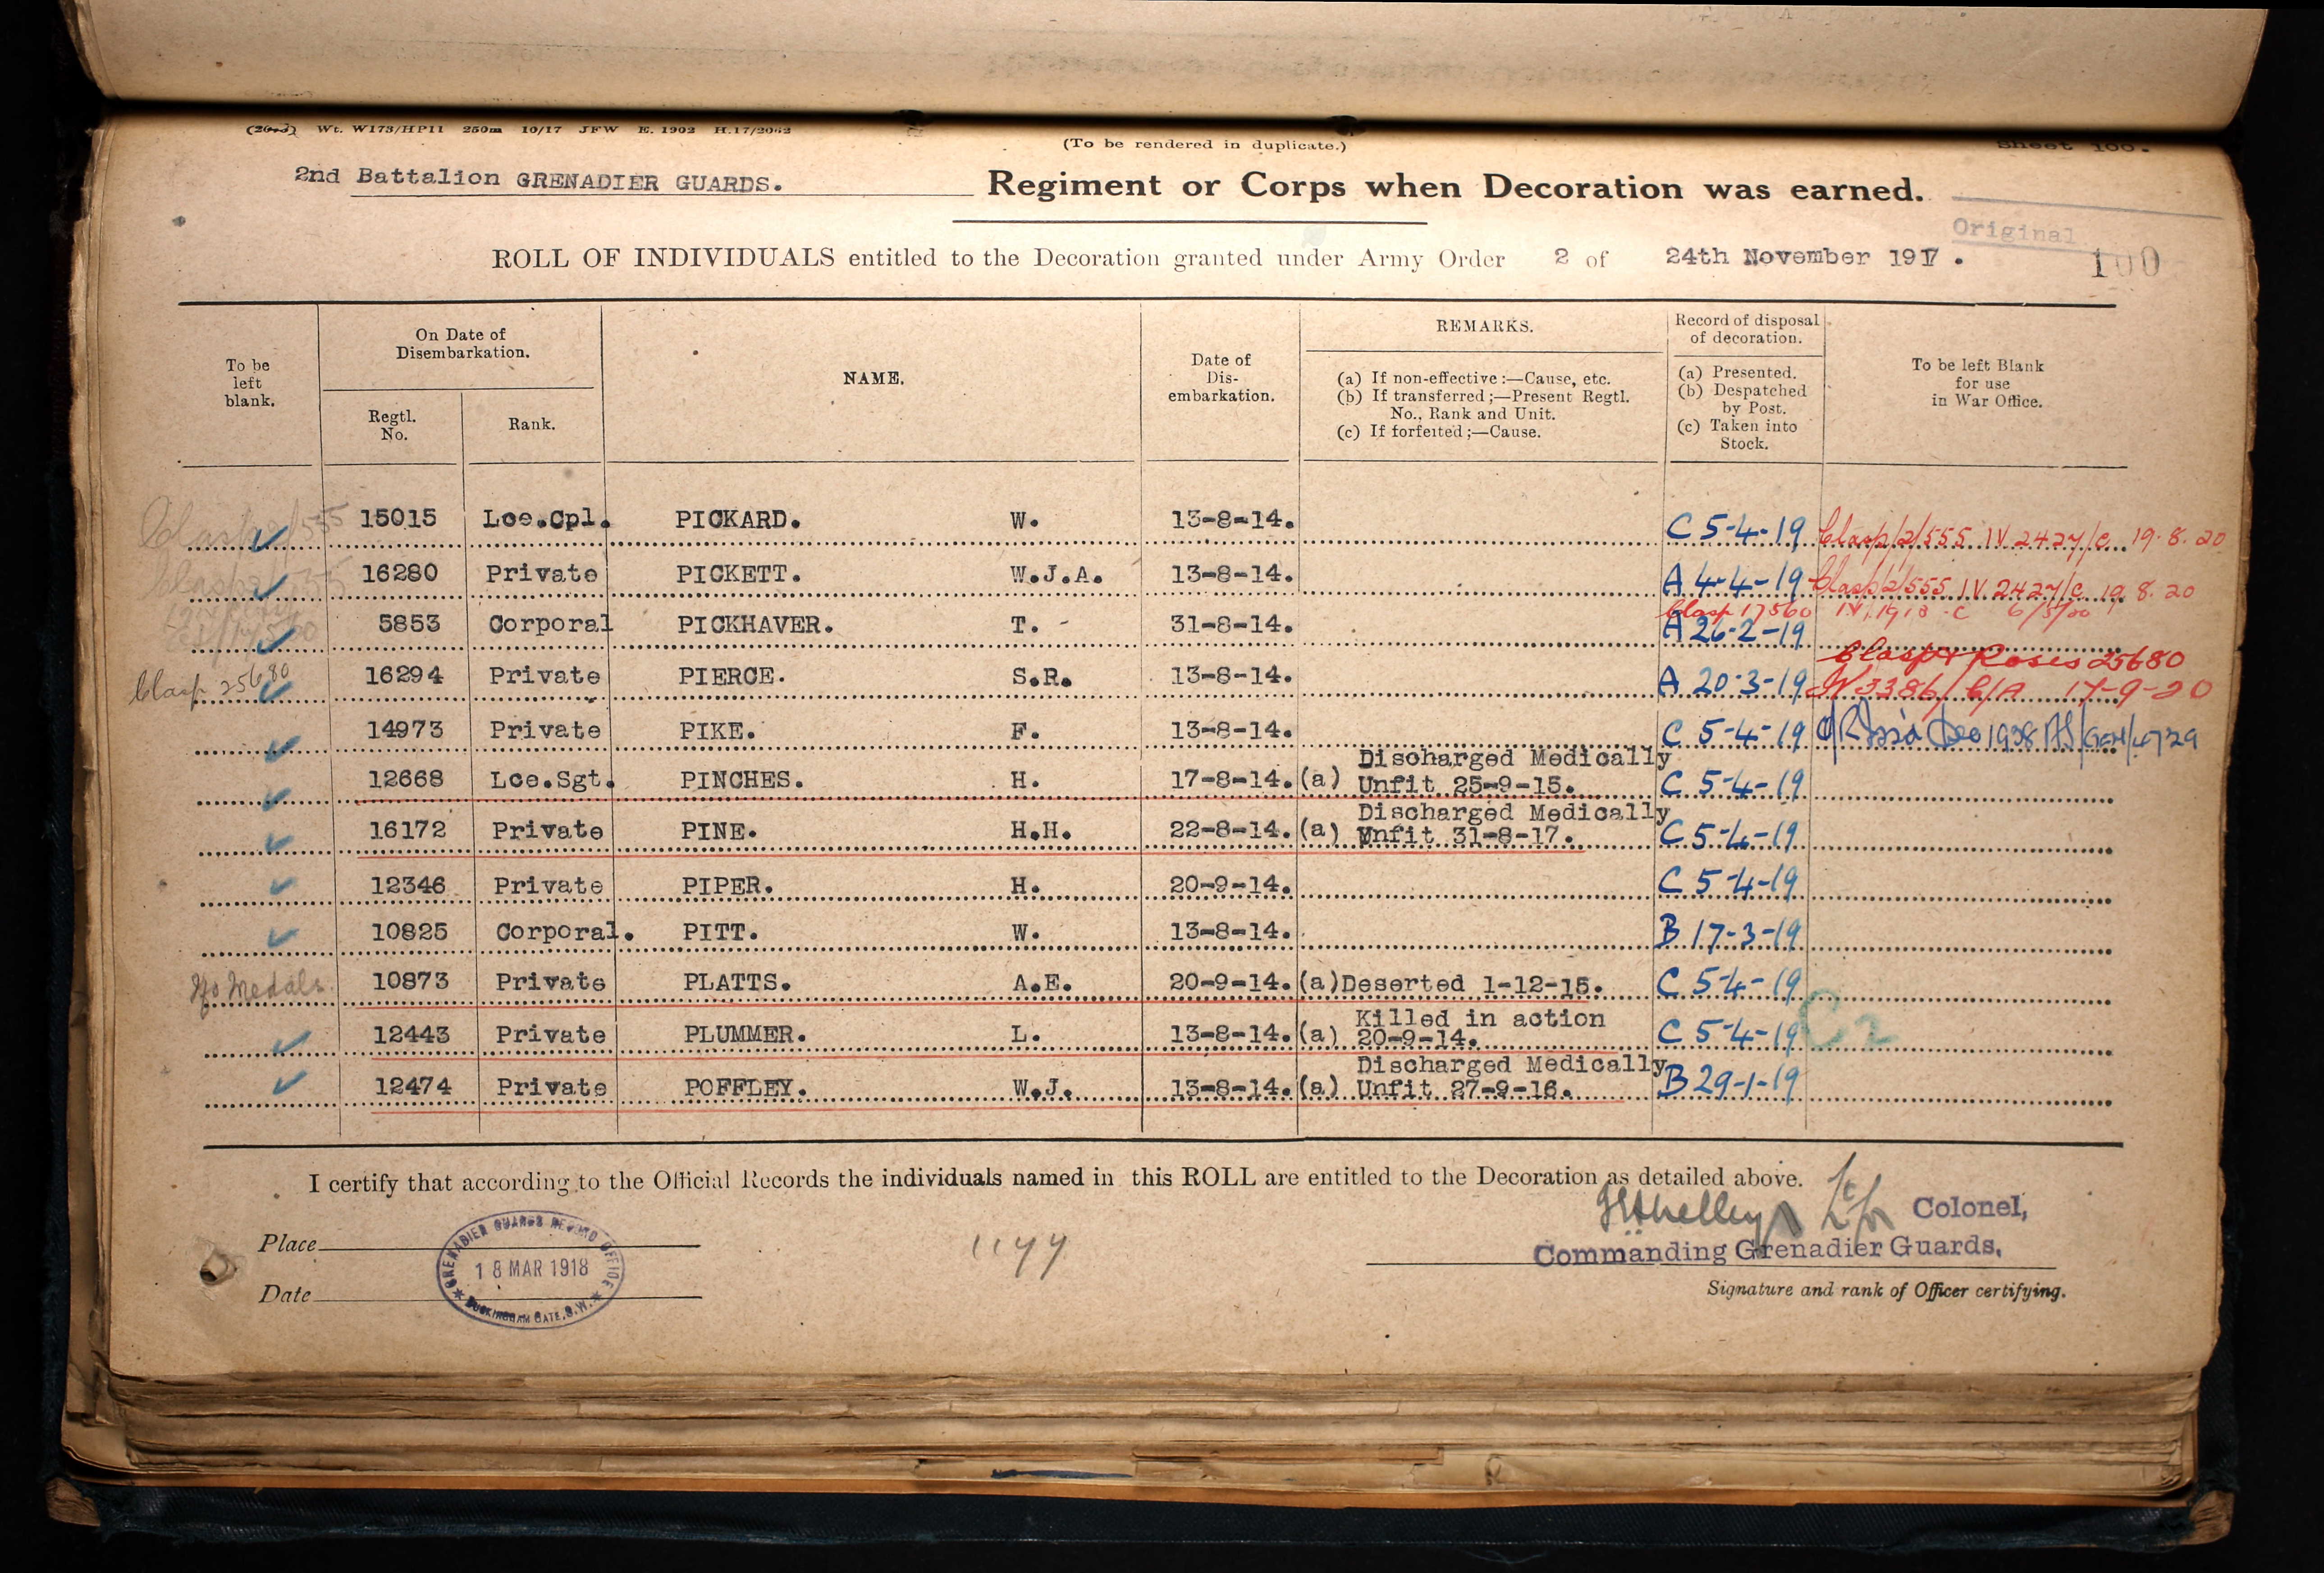 Wt. W173/HP11 250m 10/17 JFW E. 1902 H.17/2062
(To be rendered in duplicate.)
Sheet 100.
2nd Battalion GRENADIER GUARDS. Regiment or Corps when Decoration was earned.
Original
ROLL OF INDIVIDUALS entitled to the Decoration granted under Army Order 2 of 24th November 1917. 100
To be left blank.
On Date of Disembarkation.
Regtl. No.
Rank.
NAME.
Date of Dis-embarkation.
REMARKS.
(a) If non-effective:—Cause, etc.
(b) If transferred;—Present Regtl. No., Rank and Unit.
(c) If forfeited;—Cause.
Record of disposal of decoration.
(a) Presented.
(b) Despatched by Post.
(c) Taken into Stock.
To be left Blank for use in War Office.
15015 Lce.Cpl. PICKARD. W. 13-8-14. C 5-4-19 Clasp/2/555 IV 2427/C 19.8.20
16280 Private PICKETT. W.J.A. 13-8-14. A 4-4-19 Clasp/2/555 IV 2427/C 19 8.20
Clasp 17560
5853 Corporal PICKHAVER. T. 31-8-14. A 26-2-19
Clasp 25680 16294 Private PIERCE. S.R. 13-8-14. A 20-3-19 Clasp & Roses 25680
IV 3386/C/A 17-9-20
14973 Private PIKE. F. 13-8-14. C 5-4-19
12668 Lce.Sgt. PINCHES. H. 17-8-14. (a) Discharged Medically Unfit 25-9-15. C 5-4-19
16172 Private PINE. H.H. 22-8-14. (a) Discharged Medically Unfit 31-8-17. C 5-4-19
12346 Private PIPER. H. 20-9-14. C 5-4-19
10825 Corporal. PITT. W. 13-8-14. B 17-3-19
No Medals. 10873 Private PLATTS. A.E. 20-9-14. (a) Deserted 1-12-15. C 5-4-19
12443 Private PLUMMER. L. 13-8-14. (a) Killed in action 20-9-14. C 5-4-19 C2
12474 Private POFFLEY. W.J. 13-8-14. (a) Discharged Medically Unfit 27-9-16. B 29-1-19
I certify that according to the Official Records the individuals named in this ROLL are entitled to the Decoration as detailed above.
Colonel,
Commanding Grenadier Guards.
Place
Date
GRENADIER GUARDS RECORD OFFICE
18 MAR 1918
BUCKINGHAM GATE, S.W.
Signature and rank of Officer certifying.